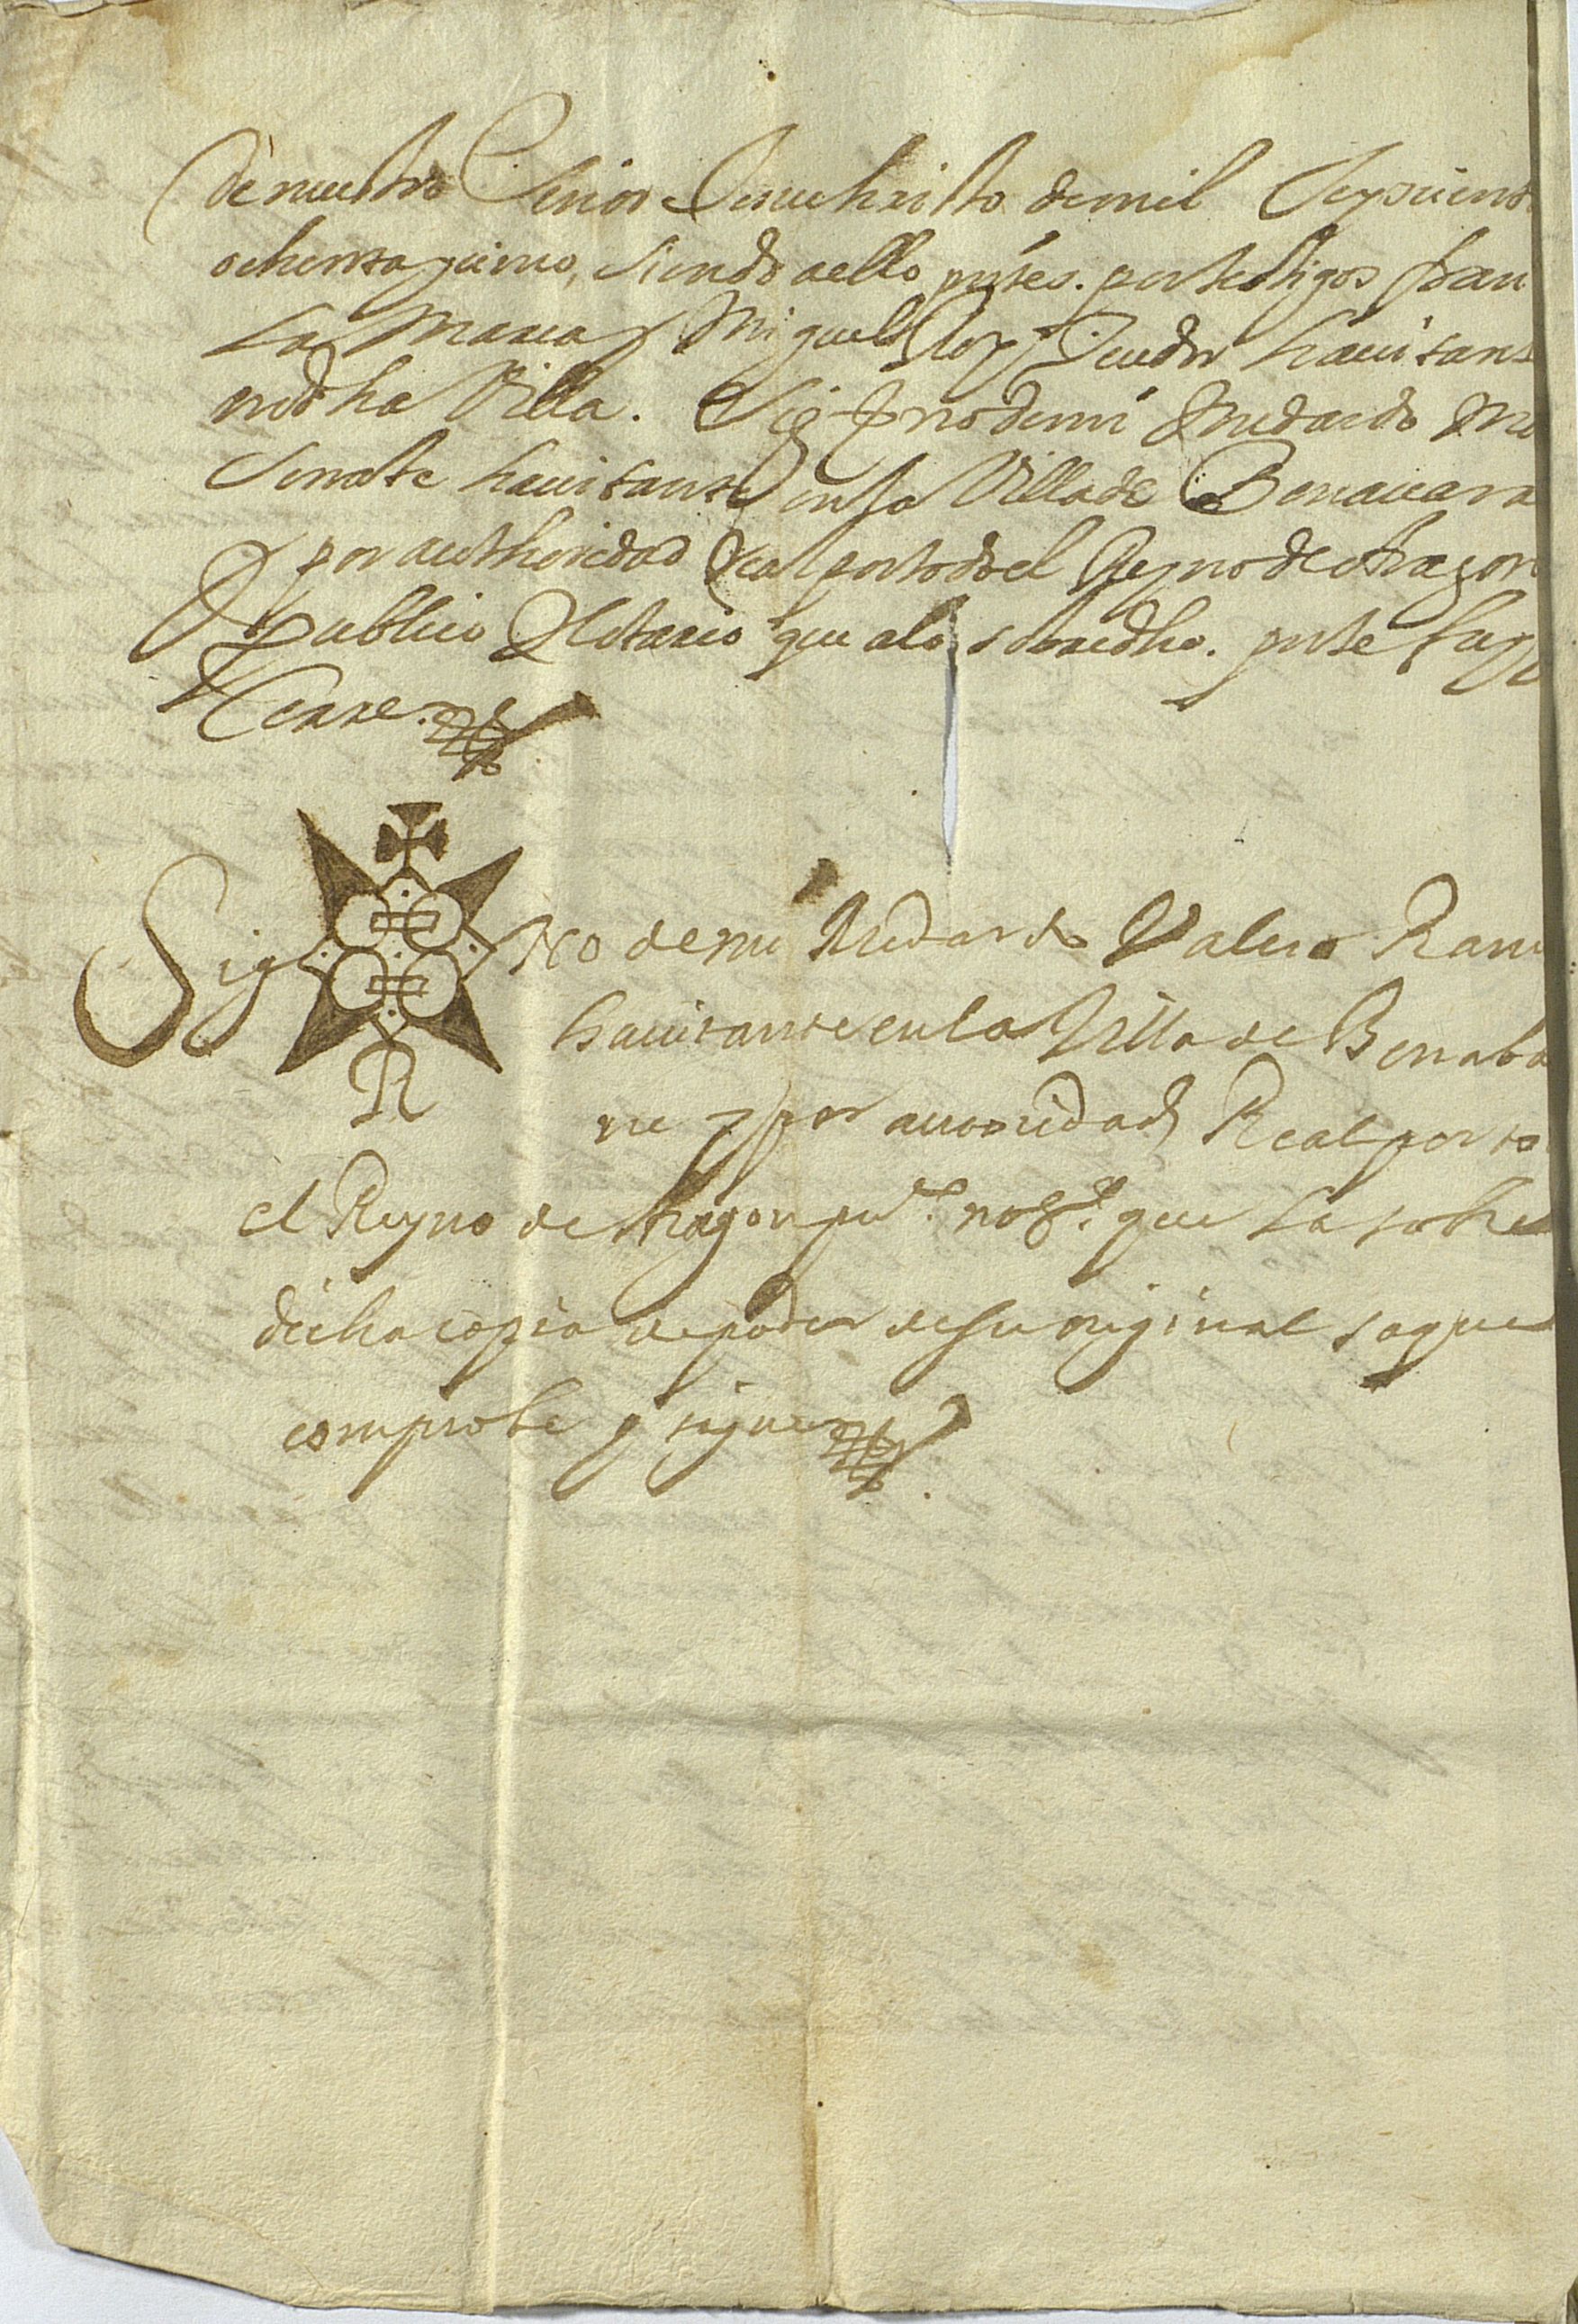 de nuestro Senor Jesuchristo de mil Seyscient
ochenta y cinco, siendo a ello pntes. por testigos fran
La Marca y Miguel Roy Teudor hauitant
en dha Villa. Sig+no de mi Medardo
hauitante en la Villa de Benauarr
y por authoridad Real por todo el Reyno de Aragon
publico Notario que a lo sobredho. pnte fuy
Cerre.
Sig no de mi Medardo Valero Ram
hauitante en la Villa de Benaba
rre y por autoridad Real por to
el Reyno de Aragon puco. notro. que la sobre
dicha copia de poder de su original saque
comprobe y signe
R